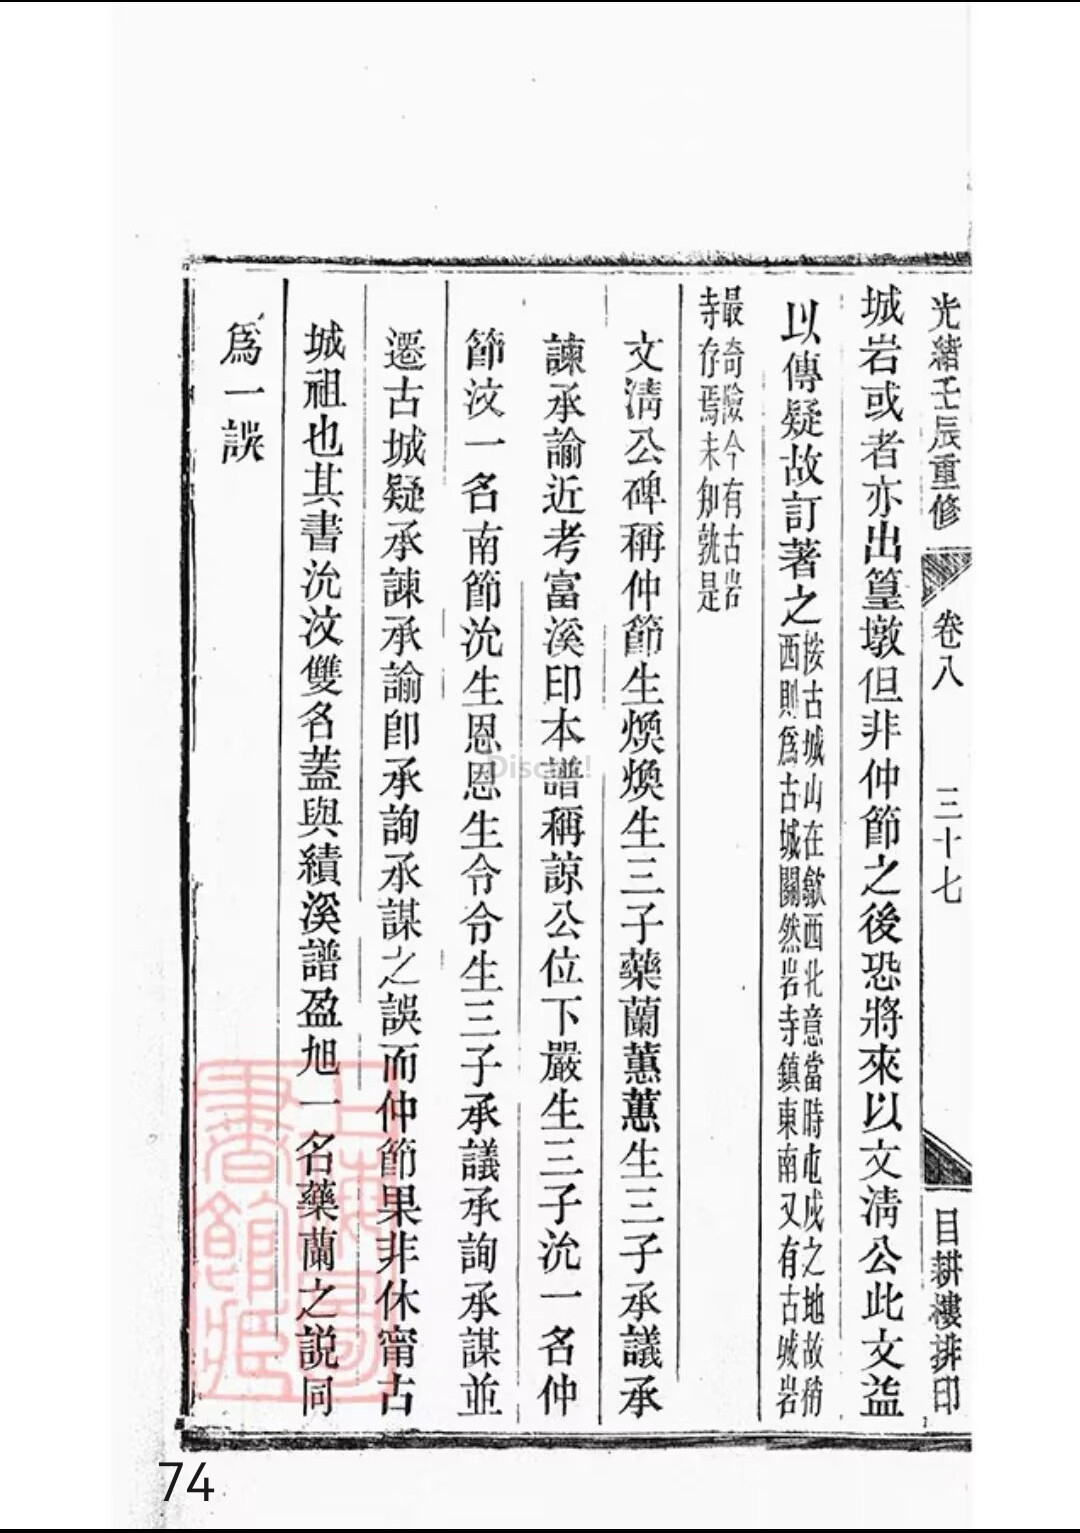 光緒壬辰重修 卷八 三十七 目耕樓排印
城岩或者亦出篁墩但非仲節之後恐將來以文淸公此文益
以傳疑故訂著之按古城山在歙西北意當時屯戍之地故稍
西則爲古城關然岩寺鎮東南又有古城岩
最奇險今有古岩
寺存焉未知孰是
文淸公碑稱仲節生煥煥生三子藥蘭蕙蕙生三子承議承
諫承諭近考富溪印本譜稱諒公位下嚴生三子沇一名仲
節汶一名南節沇生恩恩生令令生三子承議承詢承謀並
遷古城疑承諫承諭卽承詢承謀之誤而仲節果非休甯古
城祖也其書沇汶雙名蓋與績溪譜盈旭一名藥蘭之説同
爲一誤
上海圖
書館藏
74